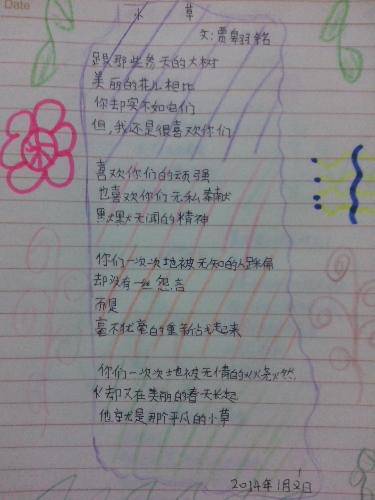 Date
小 草
文:贾翠铭
跟那些参天的大树
美丽的花儿相比
你却实不如它们
但,我还是很喜欢你们
喜欢你们的顽强
也喜欢你们无私奉献
默默无闻的精神
你们一次次地被无知的人踩偏
却没有一丝怨言
而是
毫不犹豫的重新站起来
你们一次次地被无情的火烧燃
却又在美丽的春天长起
他它就是那个平凡的小草
2014年1月2日